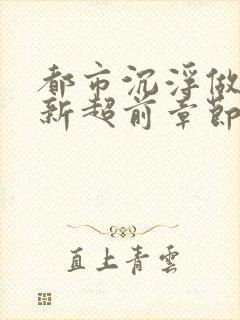 都市沉浮做
新超前章節
直上青雲